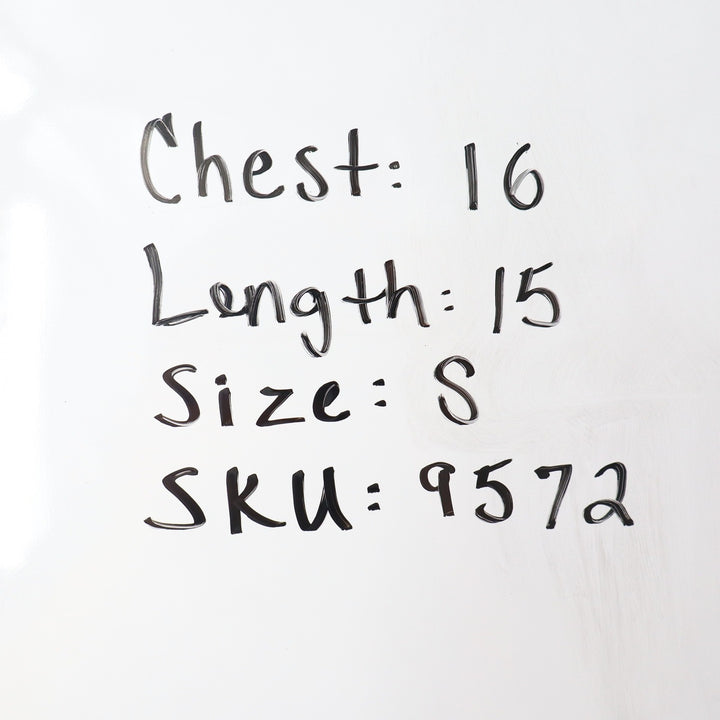 Chest: 16
Length: 15
Size: S
SKU: 9572